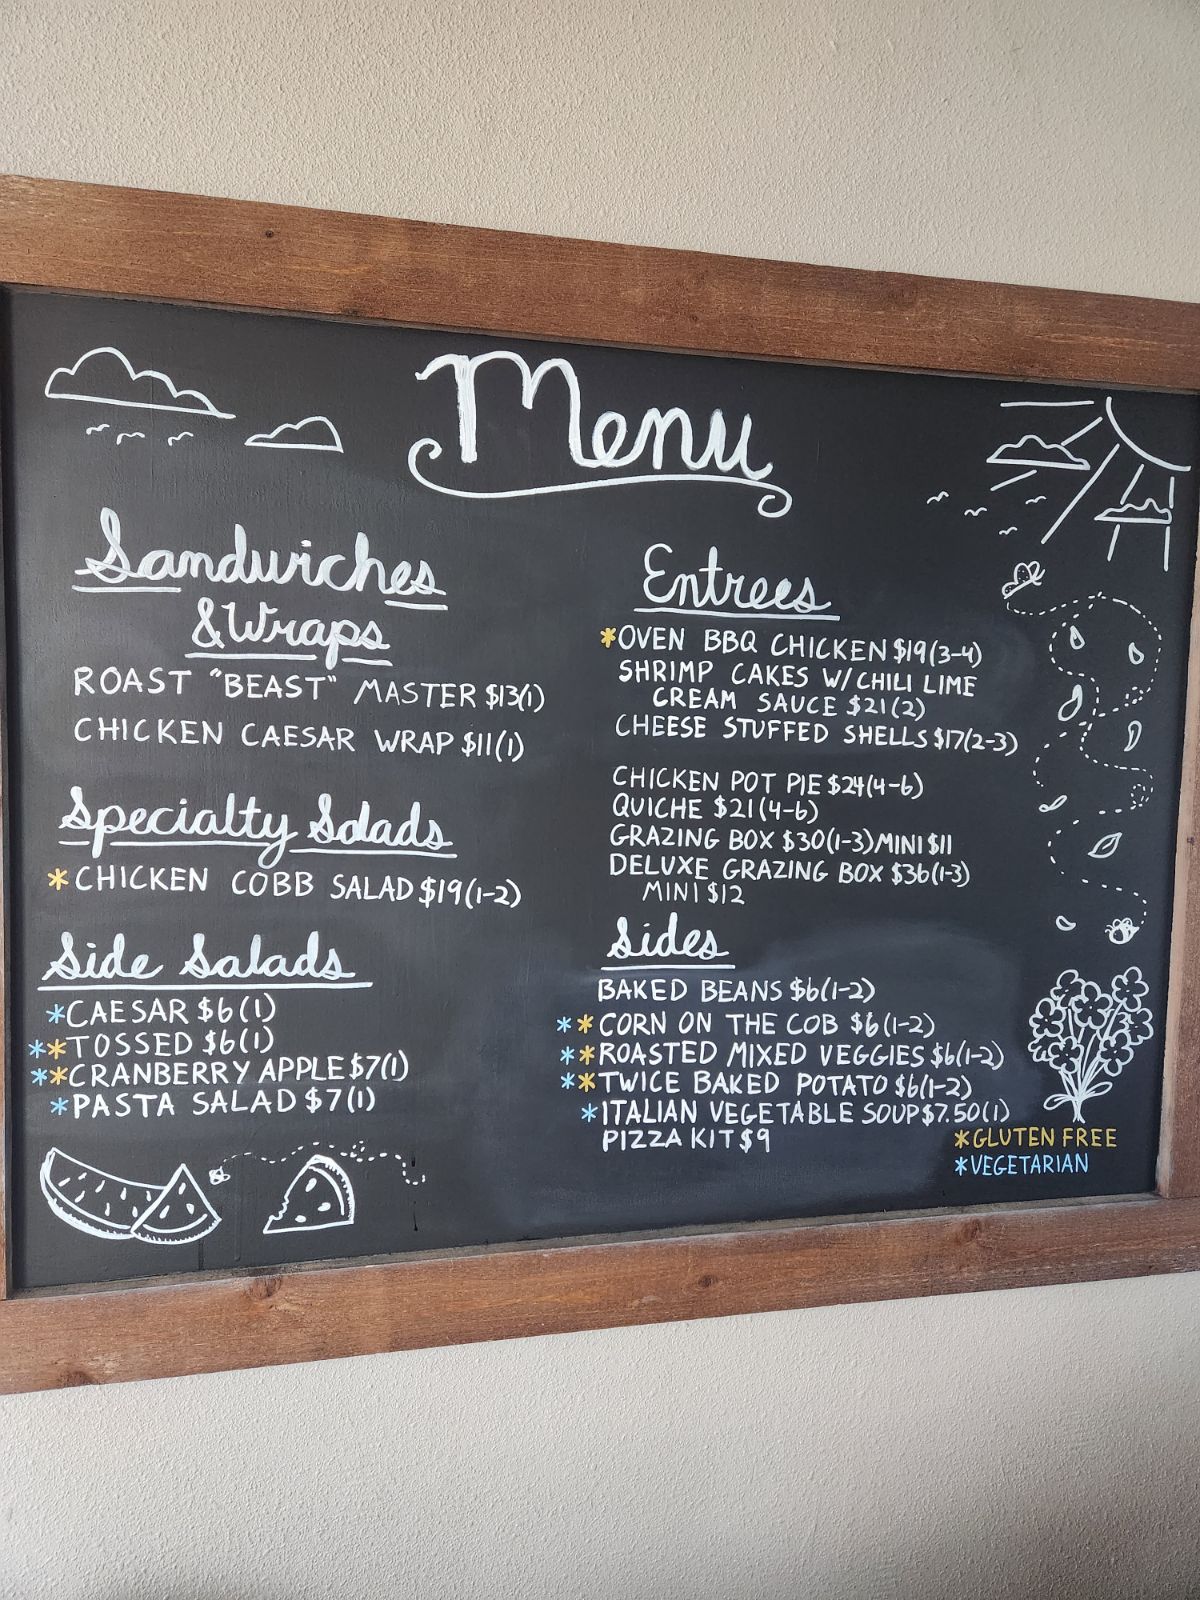 Menu
Sandwiches
& Wraps
ROAST "BEAST" MASTER $13(1)
CHICKEN CAESAR WRAP $11(1)
Specialty Salads
*CHICKEN COBB SALAD $19(1-2)
Side Salads
*CAESAR $6(1)
**TOSSED $6(1)
**CRANBERRY APPLE $7(1)
*PASTA SALAD $7(1)
Entrees
*OVEN BBQ CHICKEN $19(3-4)
SHRIMP CAKES W/CHILI LIME
CREAM SAUCE $21(2)
CHEESE STUFFED SHELLS $17(2-3)
CHICKEN POT PIE $24(4-6)
QUICHE $21(4-6)
GRAZING BOX $30(1-3) MINI $11
DELUXE GRAZING BOX $36(1-3)
MINI $12
Sides
BAKED BEANS $6(1-2)
**CORN ON THE COB $6(1-2)
**ROASTED MIXED VEGGIES $6(1-2)
**TWICE BAKED POTATO $6(1-2)
*ITALIAN VEGETABLE SOUP $7.50(1)
PIZZA KIT $9
*GLUTEN FREE
*VEGETARIAN